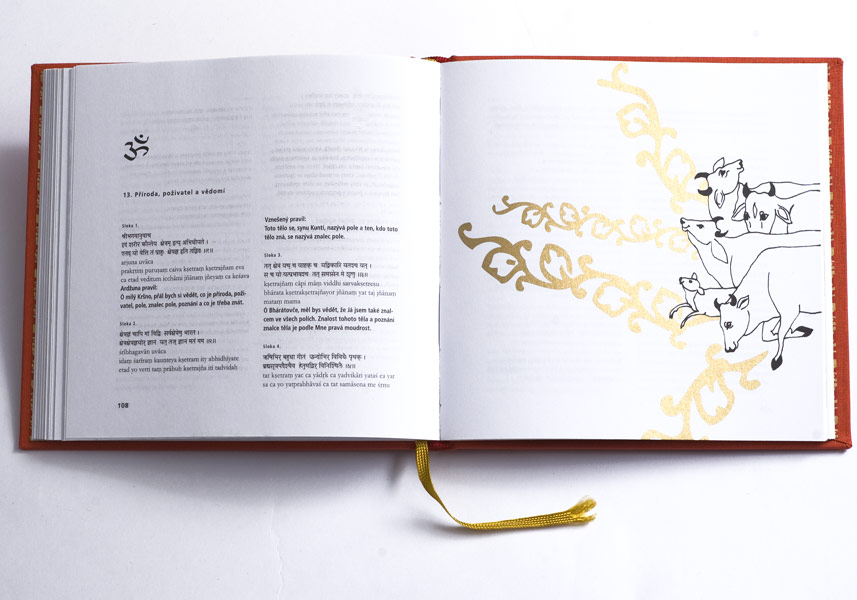 ॐ
13. Příroda, poživatel a vědomí
Sloka 1.
श्रीभगवानुवाच
इदं शरीरं कौन्तेय क्षेत्रम् इत्य् अभिधीयते ।
एतद् यो वेत्ति तं प्राहुः क्षेत्रज्ञ इति तद्विदः ॥१॥
arjuna uvāca
prakṛtim puruṇaṃ caiva kṣetraṃ kṣetrajñam eva
ca etad veditum icchāmi jñānaṃ jñeyaṃ ca keśava
Ardžuna pravil:
Ó milý Kršno, přál bych si vědět, co je příroda, poži-
vatel, pole, znalec pole, poznání a co je třeba znát.
Sloka 2.
क्षेत्रज्ञं चापि मां विद्धि सर्वक्षेत्रेषु भारत ।
क्षेत्रक्षेत्रज्ञयोर् ज्ञानं यत् तज् ज्ञानं मतं मम ॥२॥
śrībhagavān uvāca
idaṃ śarīraṃ kaunteya kṣetram ity abhidhīyate
etad yo vetti taṃ prāhuḥ kṣetrajña iti tadvidaḥ
108
Vznešený pravil:
Toto tělo se, synu Kuntí, nazývá pole a ten, kdo toto
tělo zná, se nazývá znalec pole.
Sloka 3.
तत् क्षेत्रं यच् च यादृक् च यद्विकारि यतश्च यत् ।
स च यो यत्प्रभावश्च तत् समासेन मे शृणु ॥३॥
kṣetrajñaṃ cāpi māṃ viddhi sarvakṣetreṣu
bhārata kṣetrakṣetrajñayor jñānaṃ yat taj jñānaṃ
mataṃ mama
Ó Bháratovče, měl bys vědět, že Já jsem také znal-
cem ve všech polích. Znalost tohoto těla a poznání
znalce těla je podle Mne pravá moudrost.
Sloka 4.
ऋषिभिर् बहुधा गीतं छन्दोभिर् विविधैः पृथक् ।
ब्रह्मसूत्रपदैश्चैव हेतुमद्भिर् विनिश्चितैः ॥४॥
tat kṣetraṃ yac ca yādṛk ca yadvikāri yataś ca yat
sa ca yo yatprabhāvaś ca tat samāsena me śṛṇu